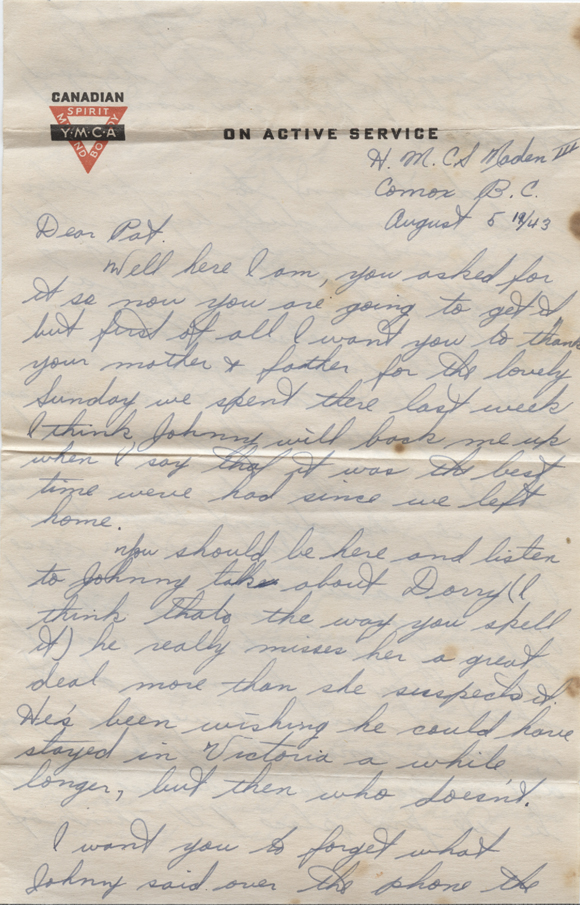 CANADIAN
SPIRIT
Y·M·C·A
MIND BODY
ON ACTIVE SERVICE
H. M. C. S Naden III
Comox B. C.
August 5 19/43
Dear Pat.
Well here I am, you asked for
it so now you are going to get it
but first of all I want you to thank
your mother & father for the lovely
Sunday we spent there last week
I think Johnny will back me up
when I say that it was the best
time weve had since we left
home.
You should be here and listen
to Johnny talk about Dorry (I
think thats the way you spell
it) he really misses her a great
deal more than she suspects it.
He's been wishing he could have
stayed in Victoria a while
longer, but then who doesn't.
I want you to forget what
Johny said over the phone the